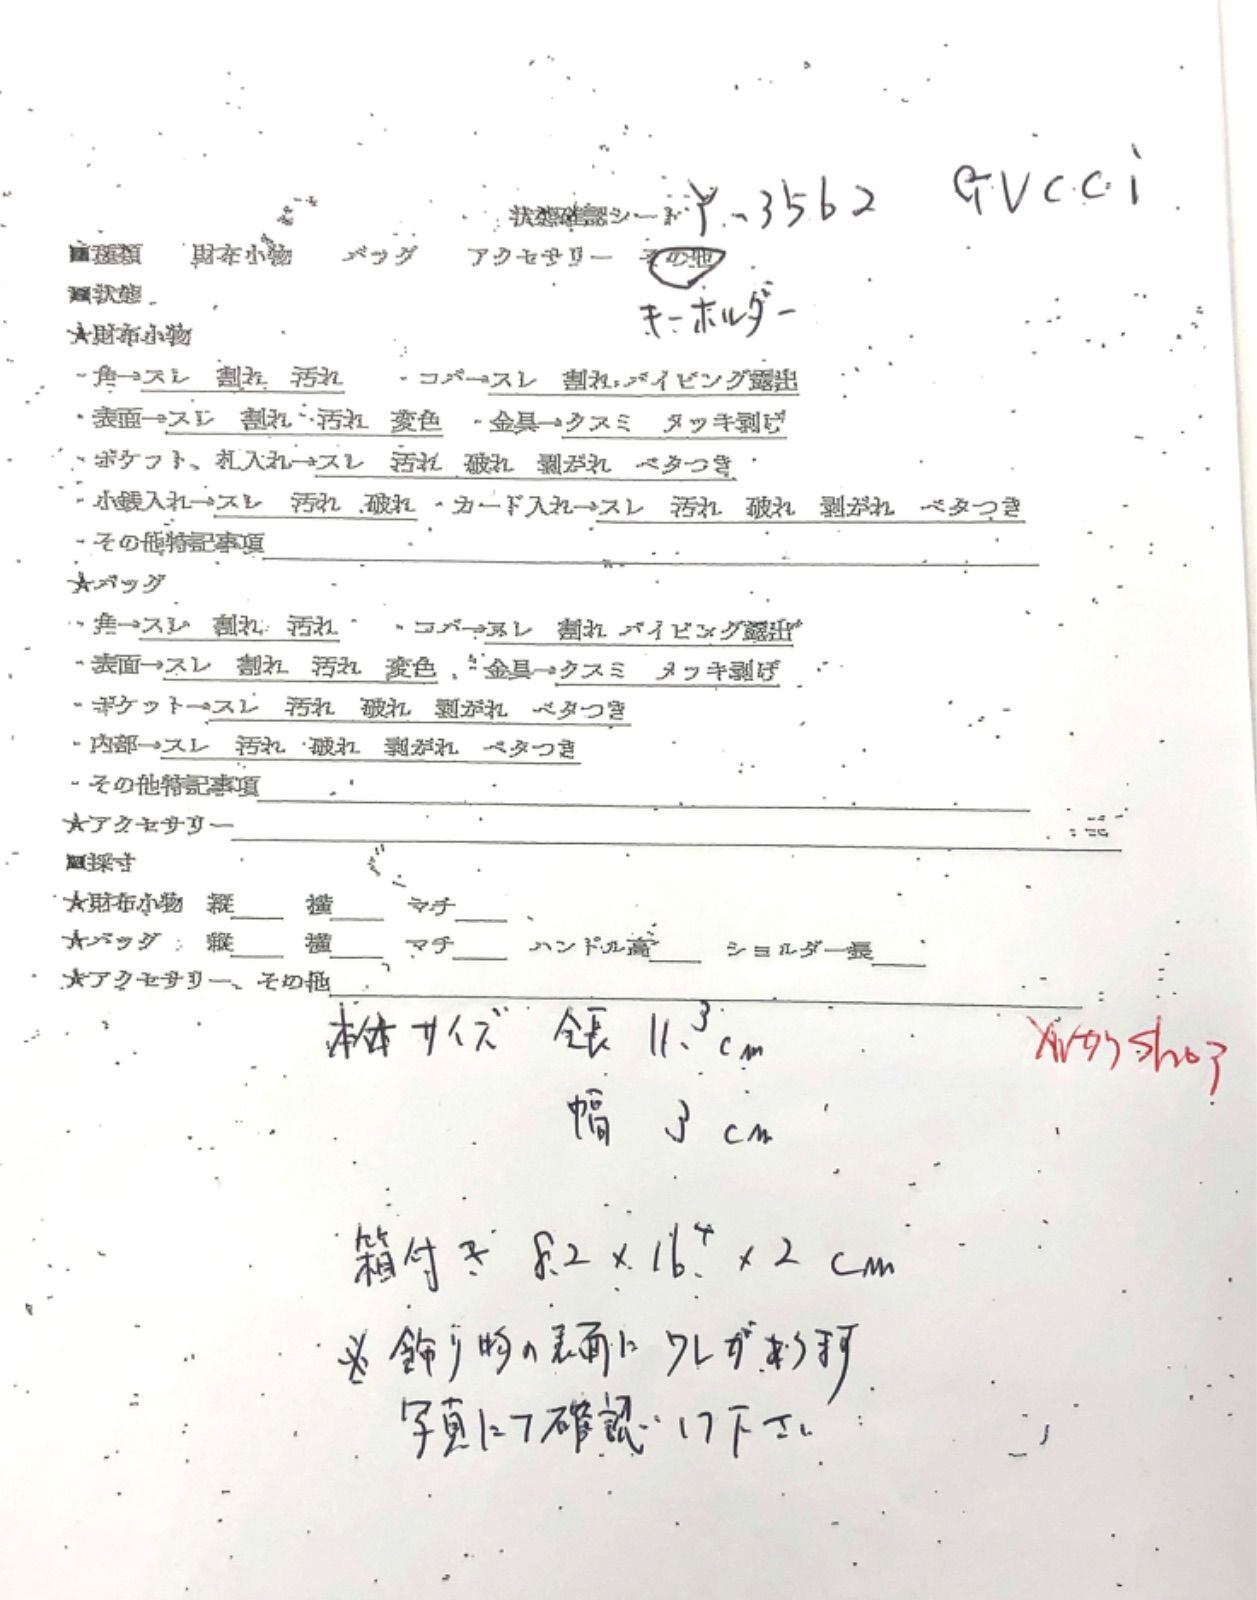 状態確認シート Y-3562 GUCCI
■種類 財布小物 バッグ アクセサリー その他
キーホルダー
■状態
★財布小物
・角→スレ 割れ 汚れ ・コバ→スレ 割れ パイピング露出
・表面→スレ 割れ 汚れ 変色 ・金具→クスミ メッキ剥げ
・ポケット、札入れ→スレ 汚れ 破れ 剥がれ ベタつき
・小銭入れ→スレ 汚れ 破れ ・カード入れ→スレ 汚れ 破れ 剥がれ ベタつき
・その他特記事項
★バッグ
・角→スレ 割れ 汚れ ・コバ→スレ 割れ パイピング露出
・表面→スレ 割れ 汚れ 変色 ・金具→クスミ メッキ剥げ
・ポケット→スレ 汚れ 破れ 剥がれ ベタつき
・内部→スレ 汚れ 破れ 剥がれ ベタつき
・その他特記事項
★アクセサリー
■採寸
★財布小物 縦 横 マチ
★バッグ 縦 横 マチ ハンドル高 ショルダー長
★アクセサリー、その他
本体サイズ 全長 11.3cm
幅 3cm
箱付き 8.2×16.4×2cm
※飾り物の表面にワレがあります
写真にて確認して下さい